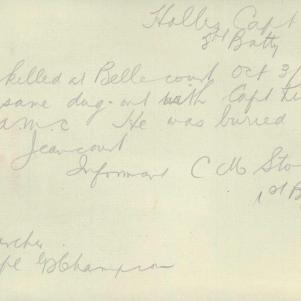 Holles Capt
3rd Batty
killed at Bellecourt Oct 3/
same dug-out with Capt
A.M.C He was buried
Jeancourt
Informant C M Sto
1st B
archer
G Champion